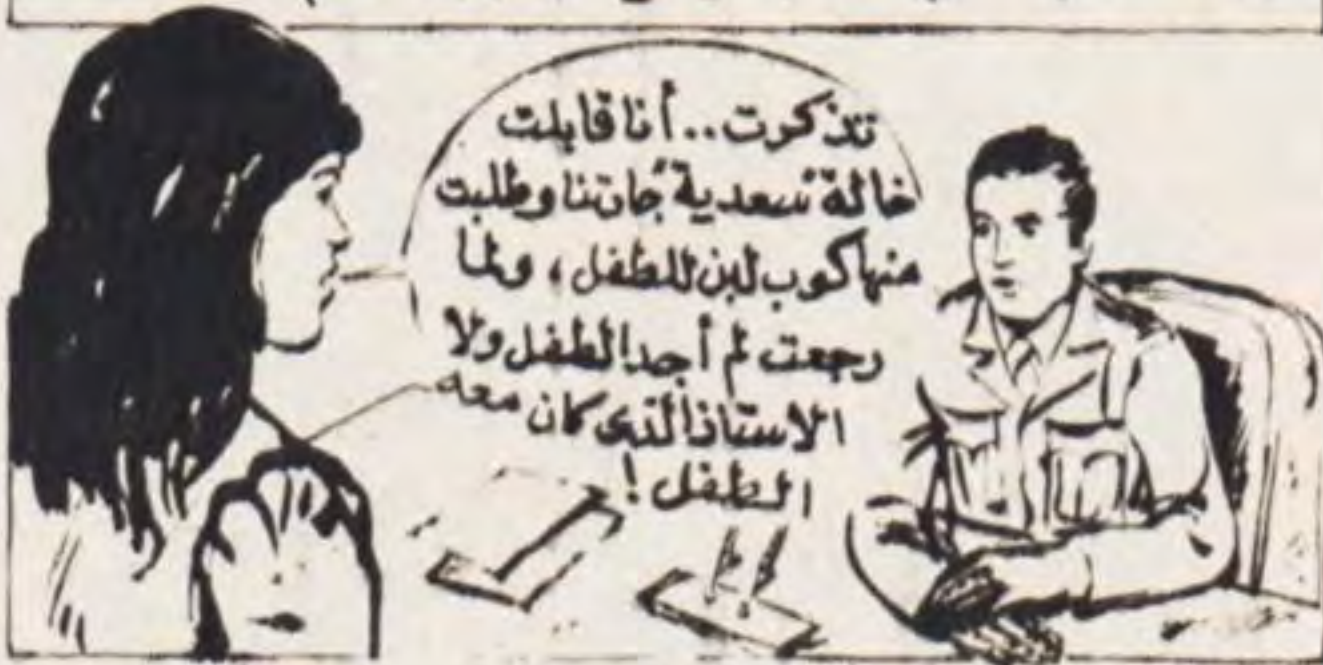 تذكرت.. أنا قابلت
خالة سعدية جارتنا وطلبت
منها كوب لبن للطفل، ولما
رجعت لم أجد الطفل ولا
الاستاذ الذى كان معه
الطفل!